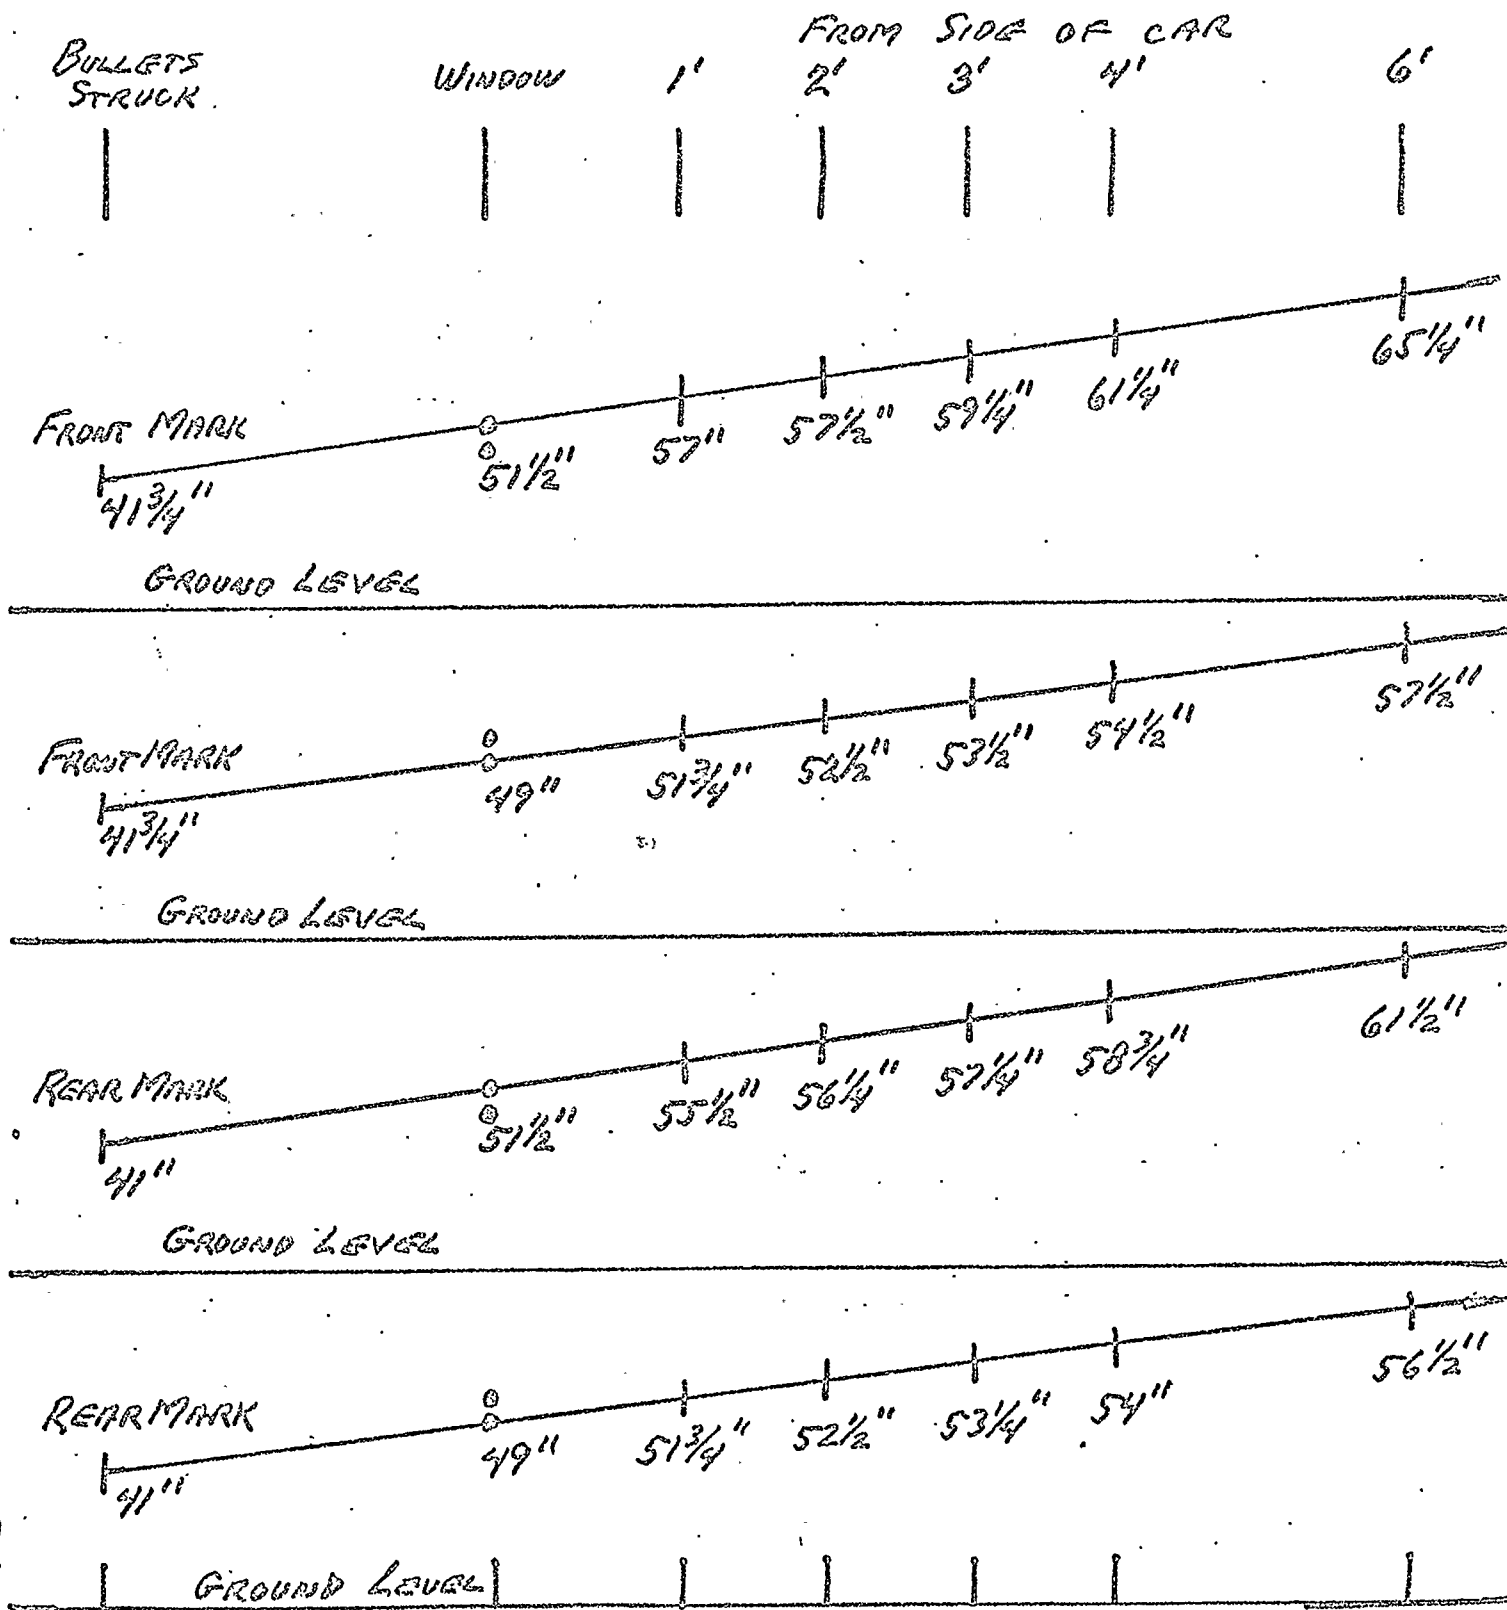 FROM SIDE OF CAR
BULLETS STRUCK
WINDOW 1' 2' 3' 4' 6'
FRONT MARK
41 3/4" 51 1/2" 57" 57 1/2" 59 1/4" 61 1/4" 65 1/4"
GROUND LEVEL
FRONT MARK
41 3/4" 49" 51 3/4" 52 1/2" 53 1/2" 54 1/2" 57 1/2"
GROUND LEVEL
REAR MARK
41" 51 1/2" 55 1/2" 56 1/4" 57 1/4" 58 3/4" 61 1/2"
GROUND LEVEL
REAR MARK
41" 49" 51 3/4" 52 1/2" 53 1/4" 54" 56 1/2"
GROUND LEVEL